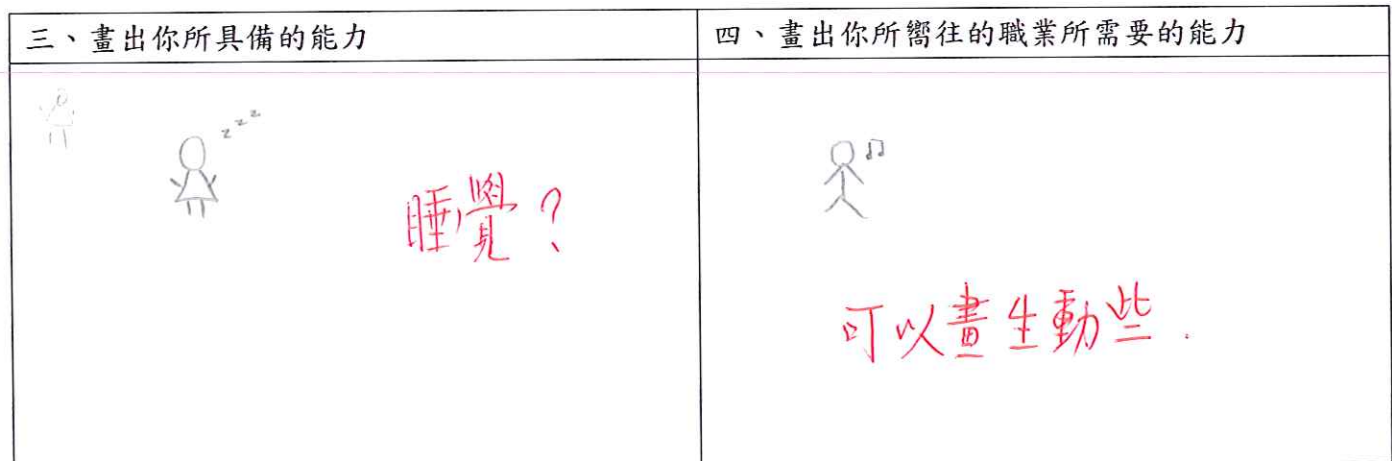 三、畫出你所具備的能力
四、畫出你所嚮往的職業所需要的能力
z z z
睡覺？
可以畫生動些.